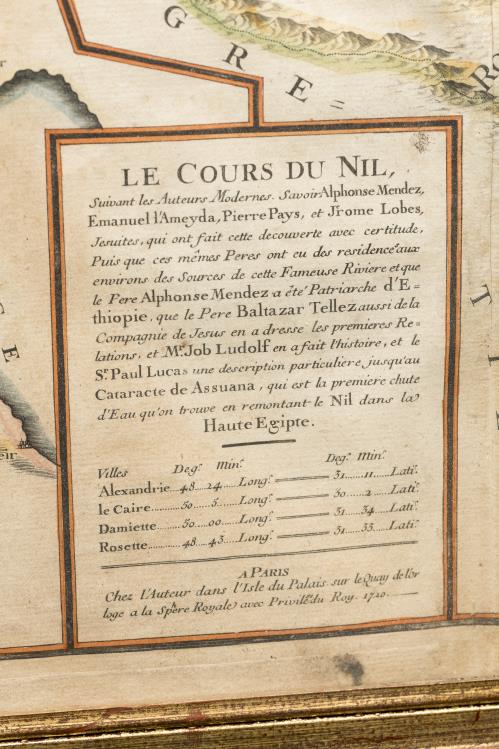 G R E =
LE COURS DU NIL,
Suivant les Auteurs Modernes. Savoir Alphonse Mendez,
Emanuel l'Ameyda, Pierre Pays, et Jrome Lobes,
Jesuites, qui ont fait cette decouverte avec certitude,
Puis que ces mêmes Peres ont eu des residence aux
environs des Sources de cette Fameuse Riviere et que
le Pere Alphonse Mendez a été Patriarche d'E=
thiopie, que le Pere Baltazar Tellez aussi de la
Compagnie de Jesus en a dresse les premieres Re=
lations, et Mr. Job Ludolf en a fait l'histoire, et le
Sr. Paul Lucas une description particuliere, jusqu'au
Cataracte de Assuana, qui est la premiere chute
d'Eau qu'on trouve en remontant le Nil dans la
Haute Egipte.
Villes Deg. Min. Deg. Min.
Alexandrie 48 24 Long. 31 11 Lati.
le Caire 50 5 Long. 30 2 Lati.
Damiette 50 00 Long. 31 34 Lati.
Rosette 48 43 Long. 31 33 Lati.
A PARIS
Chez L'Auteur dans l'Isle du Palais sur le Quay de l'or
loge a la Sphre Royale avec Privile. du Roy. 1720.